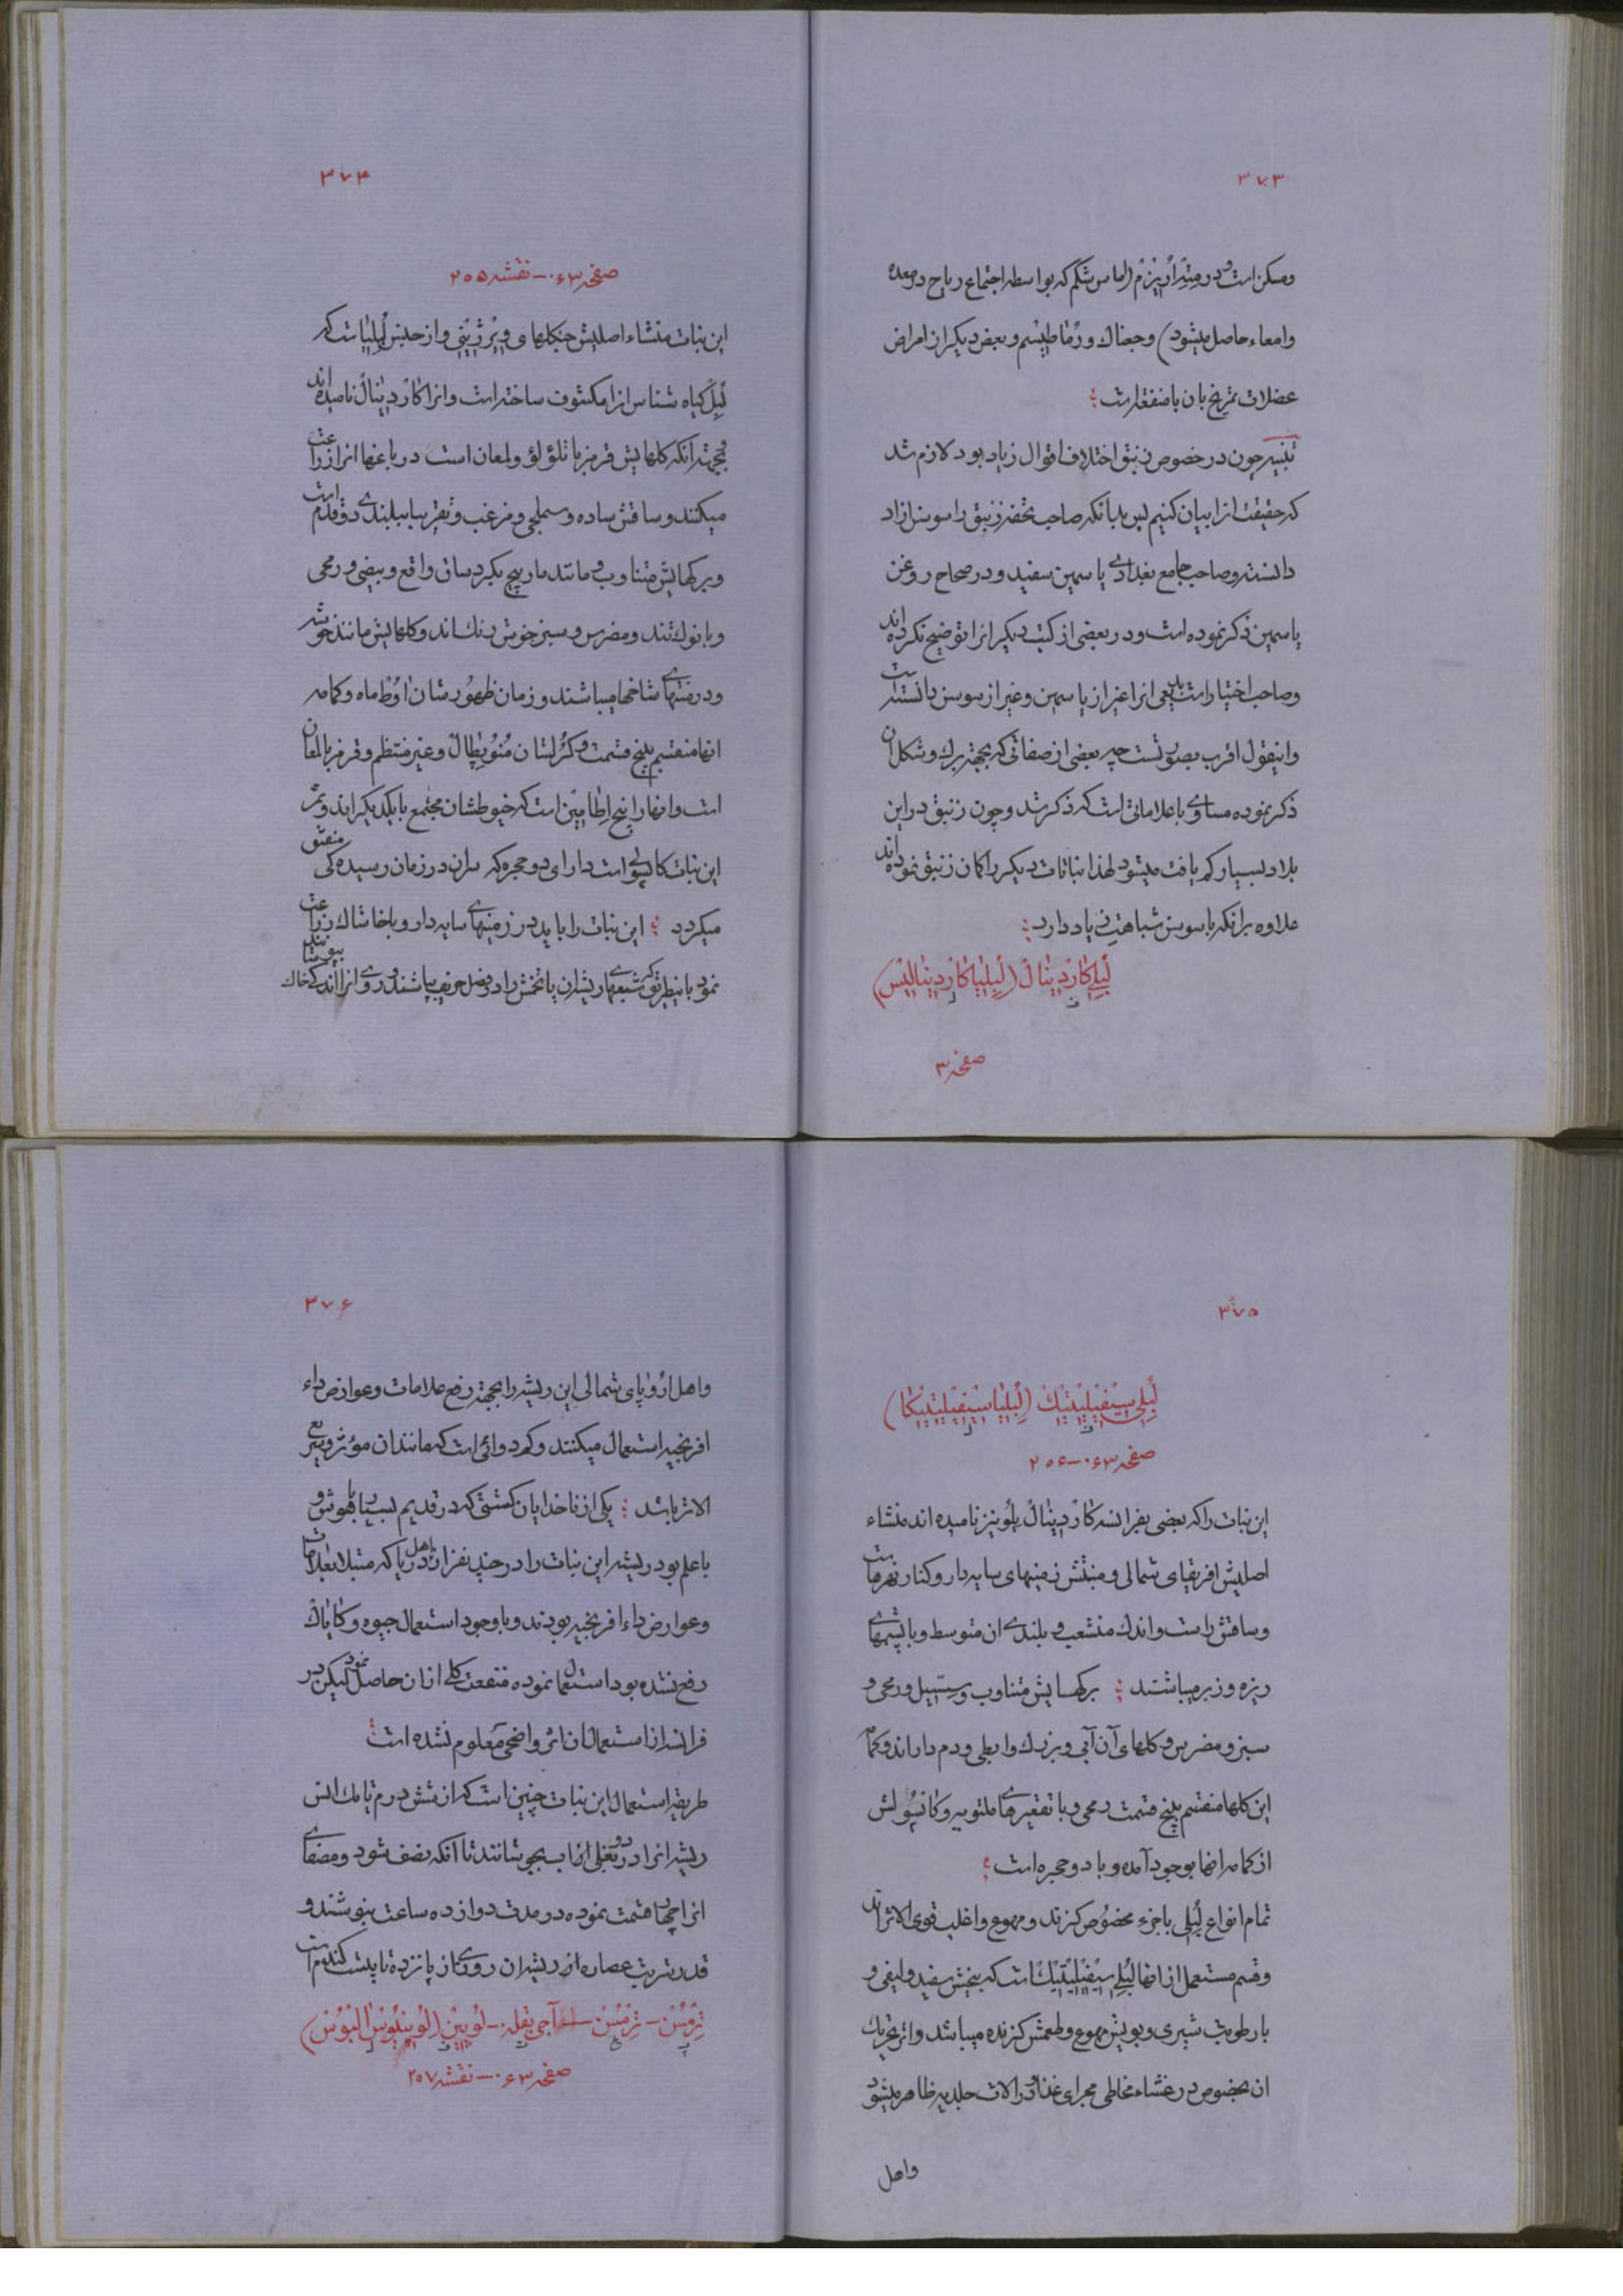 ۳۷۳
ومسکن است و در متئراریزم (اماس شکم که بواسطه اجتماع ریاح در معده
وامعاء حاصل میشود) وجعناک ورماطیسم وبعض دیگر از امراض
عضلات تمریخ بان با منفعت است
تنبیه چون در خصوص زنبق اختلاف اقوال زیاد بود لازم شد
که حقیقت انرا بیان کنیم پس بدانکه صاحب تحفه زنبق را سوسن ازاد
دانسته وصاحب جامع بغدادی یاسمین سفید و در صحاح روغن
یاسمین ذکر نموده است ودر بعضی از کتب دیگر انرا توضیح نکرده اند
وصاحب اختیارات بدیعی انرا غیر از یاسمین وغیر از سوسن دانسته است
واینقول اقرب بصوبست چه بعضی از صفاتی که بجهة برك وشکل ان
ذکر نموده مساوی با علاماتی است که ذکر شد وچون زنبق در این
بلاد بسیار کم یافت میشود لهذا نباتات دیگر را کمان زنبق نموده اند
علاوه برانکه با سوسن شباهت زیاد دارد
لبلی کاردینال (لبلیا کاردینالیس)
صفحه ۳
۳۷۴
صفحه ۰۶۳ - نقشه ۲۵۵
این نبات منشاء اصلیش جنکلهای ویرژینی واز جنس لبلیاست که
لبل کیاه شناس انرا مکشوف ساخته است وانرا کاردینال نامیده اند
بجهة انکه کلهایش قرمز با تلؤلؤ ولمعان است در باغها انرا زراعت
میکنند وساقش ساده و سملجی ومزغب وتقریبا ببلندی دو قدم است
وبرکهایش متناوب ومانند مارپیچ بکرد ساق واقع وبیضی ورمحی
وبا نوك تند ومضرس وسبز خوش رنك اند وکلهایش مانند خوشه
ودر منتهای شاخها میباشند وزمان ظهور شان اوط ماه وکمامه
انها منقسم بپنج قسمت وکرلشان منوپطال وغیر منتظم وقرمز با لمعان
است وانها را پنج اطامین است که خیوطشان مجتمع با یکدیکر اند وثمر
این نبات کاپسول است دارای دو حجره که سران در زمان رسیده کی منفتق
میکردد این نبات را باید در زمینهای سایه دار وباخاشاك زراعت
نمود باینطریق که شعبهای ریشه ان یا تخمش را در فصل خریف بپاشند وروی انرا اندکی خاك بپوشانند
۳۷۵
لبلی سیفیلیتیك (لبلیا سیفیلیتیکا)
صفحه ۰۶۳ - ۲۵۶
این نبات را که بعضی بفرانسه کاردینال بلو نیز نامیده اند منشاء
اصلیش افریقای شمالی ومنبتش زمینهای سایه دار وکنار نهرهاست
وساقش راست واندك منشعب وبلندی ان متوسط وبا پشمهای
ریزه وزبر میباشند برکهایش متناوب وسسیل ورمحی و
سبز ومضرس وکلهای آن آبی وبزرك وابطی ودم دار اند وکمامه
این کلها منقسم بپنج قسمت رمحی وبا تقعیرهای ملتویه وکاپسولش
از کمامه انها بوجود آمده وبا دو حجره است
تمام انواع لبلی با جزء مخصوص کزنده ومهوع واغلب قوی الاثراند
وقسم مستعمل از انها لبلی سیفیلیتیك است که بیخش سفید ولیفی و
با رطوبت شیری وبویش مهوع وطعمش کزنده میباشد واثر تحریك
ان بخصوص در غشاء مخاطی مجرای غذا ودر الات جلدیه ظاهر میشود
واهل
۳۷۶
واهل اروپای شمالی این ریشه را بجهة رفع علامات وعوارض داء
افرنجیه استعمال میکنند وکم دوائی است که مانند ان مؤثر وسریع
الاثر باشد یکی از ناخدایان کشتی که در قدیم بسیار باهوش و
باعلم بود ریشه این نبات را در چند نفر از اهل دریا که مبتلا بعلامات
وعوارض داء افرنجیه بودند وبا وجود استعمال جیوه وکایاك
رفع نشده بود استعمال نموده منفعت کلی از ان حاصل نمود لیکن در
فرانسه از استعمال ان اثر واضحی معلوم نشده است
طریقه استعمال این نبات چنین است که از شش درم تا یك انس
ریشه انرا در دو بغلی اب بجوشانند تا آنکه نصف شود ومصفای
انرا چهار قسمت نموده در مدت دوازده ساعت بنوشند و
قدر شربت عصاره از ریشه ان روزی از پانزده تا بیست کندم است
ترمس - ترمس - آجی بقله - لوپین (لوپینوس البوس)
صفحه ۰۶۳ - نقشه ۲۵۷